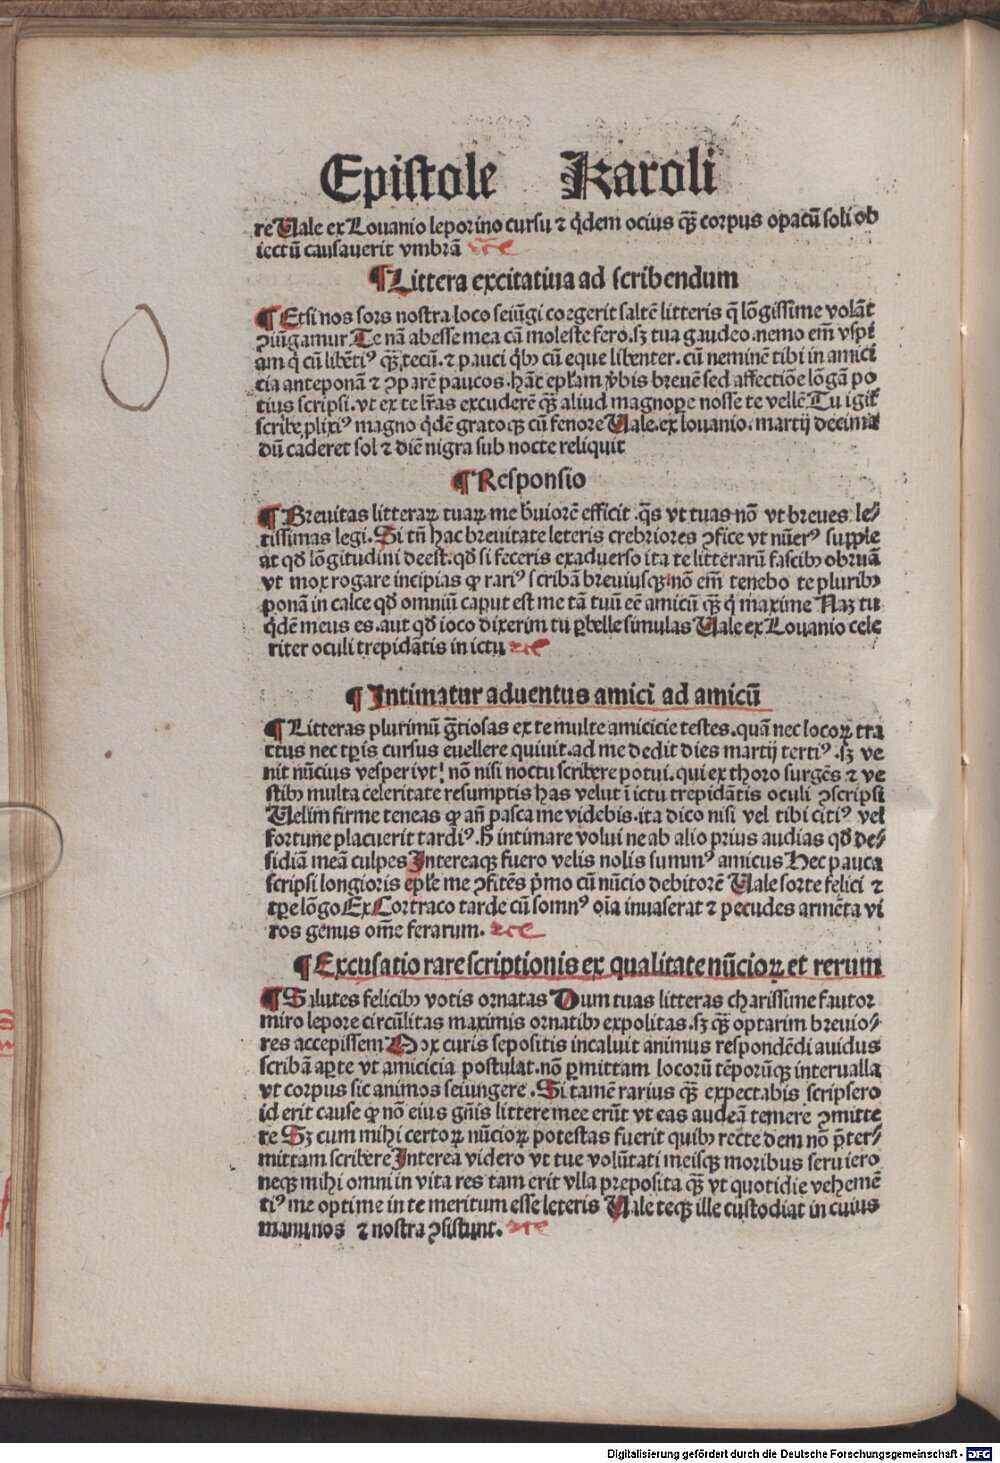 Epistole Karoli
re Uale ex Louanio leporino cursu ⁊ q̇dem ocius qȝ̄ corpus opacū soli ob
iectū causauerit vmbrā
¶ Littera excitatiua ad scribendum
¶ Etsi nos sors nostra loco seiūgi coegerit saltē litteris q̄ lōgissime volāt
ꝯiūgamur Te nā abesse mea cā moleste fero. sȝ tua gaudeo. nemo em̄ vspi
am q̇ cū libētiꝰ qȝ̄ tecū. ⁊ pauci q̇bꝫ cū eque libenter. cū neminē tibi in amici
cia anteponā ⁊ ꝯparē paucos. hāc epl̄am v̓bis breuē sed affectiōe lōgā po
tius scripsi. vt ex te lr̄as excuderē qȝ̄ aliud magnoꝑe nosse te vellē Tu igit̄
scribe ꝓlixiꝰ magno q̇dē gratoqꝫ cū fenore Uale. ex louanio. martij decima
dū caderet sol ⁊ diē nigra sub nocte reliquit
¶ Responsio
¶ Breuitas litteraꝝ tuaꝝ me b̓uiorē efficit. q̄s vt tuas nō vt breues le⸗
tissimas legi. Si tn̄ hac breuitate leteris crebriores ꝯfice vt nūerꝰ supple
at qđ lōgitudini deest. qđ si feceris exaduerso ita te litterarū fascibꝫ obruā
vt mox rogare incipias ꝙ rariꝰ scribā breuiusqꝫ nō em̄ tenebo te pluribꝫ
ponā in calce qđ omniū caput est me tā tuū eē amicū qȝ̄ q̇ maxime Naȝ tu
q̇dē meus es. aut qđ ioco dixerim tu ꝑbelle simulas Uale ex Louanio cele
riter oculi trepidātis in ictu
¶ Intimatur aduentus amici ad amicū
¶ Litteras plurimū gr̄tiosas ex te multe amicicie testes. quā nec locoꝝ tra
ctus nec tꝑis cursus euellere quiuit. ad me dedit dies martij tertiꝰ. sȝ ve
nit nūcius vesperi vt! nō nisi noctu scribere potui. qui ex thoro surgēs ⁊ ve
stibꝫ multa celeritate resumptis has velut ī ictu trepidātis oculi ꝯscripsi
Uelim firme teneas ꝙ an̄ pasca me videbis. ita dico nisi vel tibi citiꝰ vel
fortune placuerit tardiꝰ. h̄ intimare volui ne ab alio prius audias qđ de⸗
sidiā meā culpes Intereaqꝫ fuero velis nolis summꝰ amicus Hec pauca
scripsi longioris epl̄e me ꝯfitēs p̓mo cū nūcio debitorē Uale sorte felici ⁊
tꝑe lōgo Ex Cortraco tarde cū somnꝰ oīa inuaserat ⁊ pecudes armēta vi
ros genus om̄e ferarum.
¶ Excusatio rare scriptionis ex qualitate nūcioꝝ et rerum
¶ Salutes felicibꝫ votis ornatas Dum tuas litteras charissime fautor
miro lepore circūlitas maximis ornatibꝫ expolitas. sȝ qȝ̄ optarim breuio⸗
res accepissem Mox curis sepositis incaluit animus respondēdi auidus
scribā aꝑte vt amicicia postulat. nō ꝑmittam locorū tēporūqꝫ interualla
vt corpus sic animos seiungere. Si tamē rarius qȝ̄ expectabis scripsero
id erit cause ꝙ nō eius gn̄is littere mee erūt vt eas audeā temere ꝯmitte
re Sȝ cum mihi certoꝝ nūcioꝝ potestas fuerit quibꝫ recte dem nō p̄ter⸗
mittam scribere Interea videro vt tue volūtati meisqꝫ moribus seruiero
neqꝫ mihi omni in vita res tam erit vlla preposita qȝ̄ vt quotidie vehemē
tiꝰ me optime in te meritum esse leteris Uale teqꝫ ille custodiat in cuius
manu nos ⁊ nostra ꝯsistunt.
Digitalisierung gefördert durch die Deutsche Forschungsgemeinschaft - DFG